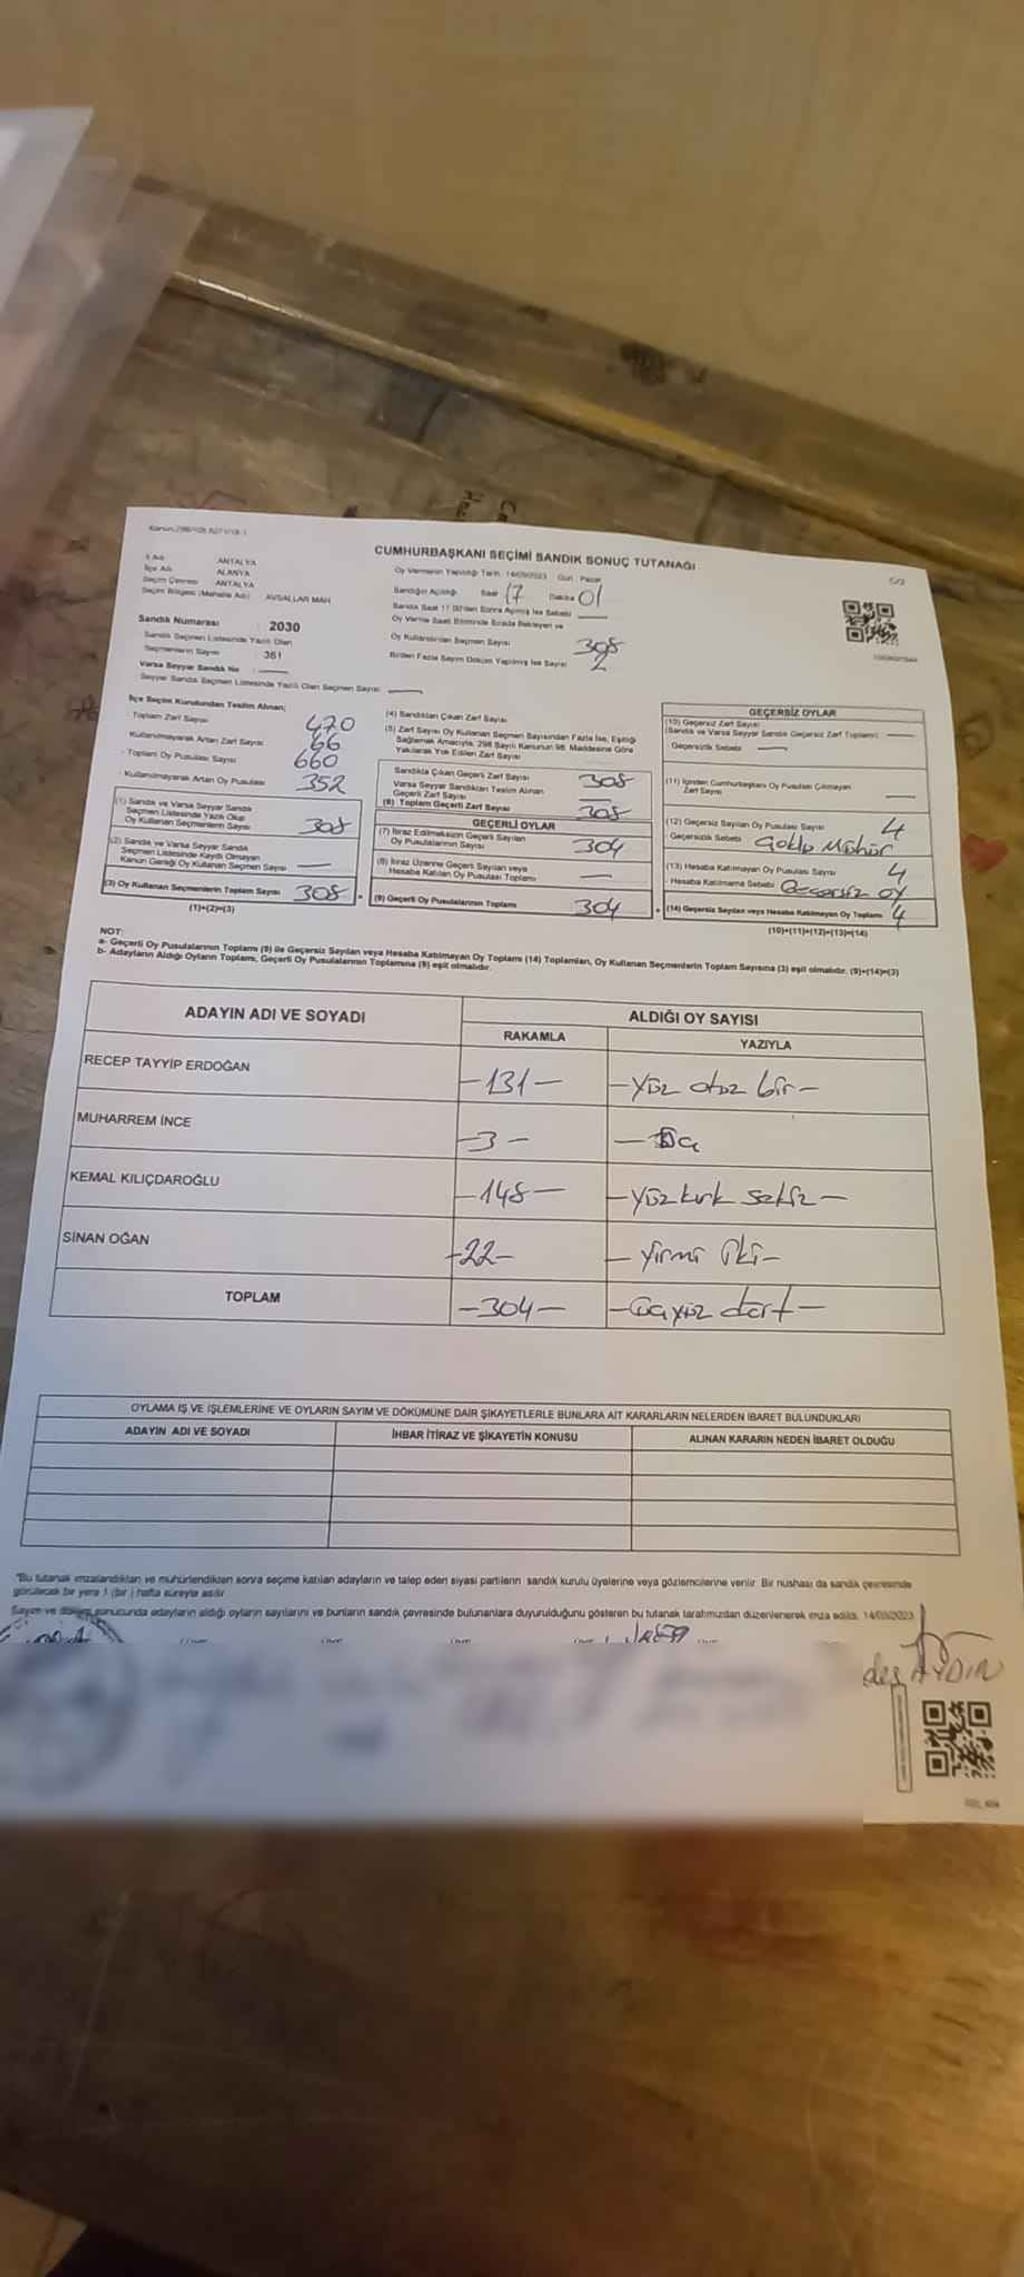 CUMHURBAŞKANI SEÇİMİ SANDIK SONUÇ TUTANAĞI
İl Adı ANTALYA
İlçe Adı ALANYA
Seçim Çevresi ANTALYA
Seçim Bölgesi (Mahalle Adı) AVSALLAR MAH
Sandık Numarası : 2030
Sandık Seçmen Listesinde Yazılı Olan
Seçmenlerin Sayısı 361
Varsa Seyyar Sandık No :
Seyyar Sandık Seçmen Listesinde Yazılı Olan Seçmen Sayısı
Oy Vermenin Yapıldığı Tarih: 14/05/2023 Gün: Pazar
Sandığın Açıldığı Saat 17 Dakika 01
Sandık Saat 17.00'den Sonra Açılmış İse Sebebi
Oy Verme Saati Bitiminde Sırada Bekleyen ve
Oy Kullandırılan Seçmen Sayısı 308
Birden Fazla Sayım Döküm Yapılmış İse Sayısı 2
İlçe Seçim Kurulundan Teslim Alınan;
- Toplam Zarf Sayısı 470
Kullanılmayarak Artan Zarf Sayısı 66
- Toplam Oy Pusulası Sayısı 660
- Kullanılmayarak Artan Oy Pusulası 352
(1) Sandık ve Varsa Seyyar Sandık
Seçmen Listesinde Yazılı Olup
Oy Kullanan Seçmenlerin Sayısı 308
(2) Sandık ve Varsa Seyyar Sandık
Seçmen Listesinde Kaydı Olmayan
Kanun Gereği Oy Kullanan Seçmen Sayısı
(3) Oy Kullanan Seçmenlerin Toplam Sayısı 308
(1)+(2)=(3)
(4) Sandıktan Çıkan Zarf Sayısı
(5) Zarf Sayısı Oy Kullanan Seçmen Sayısından Fazla İse, Eşitliği
Sağlamak Amacıyla, 298 Sayılı Kanunun 98. Maddesine Göre
Yakılarak Yok Edilen Zarf Sayısı
Sandıkta Çıkan Geçerli Zarf Sayısı 308
Varsa Seyyar Sandıktan Teslim Alınan
Geçerli Zarf Sayısı
(6) Toplam Geçerli Zarf Sayısı 308
GEÇERLİ OYLAR
(7) İtiraz Edilmeksizin Geçerli Sayılan
Oy Pusulalarının Sayısı 304
(8) İtiraz Üzerine Geçerli Sayılan veya
Hesaba Katılan Oy Pusulası Toplamı
(9) Geçerli Oy Pusulalarının Toplamı 304
GEÇERSİZ OYLAR
(10) Geçersiz Zarf Sayısı
(Sandık ve Varsa Seyyar Sandık Geçersiz Zarf Toplamı)
Geçersizlik Sebebi
(11) İçinden Cumhurbaşkanı Oy Pusulası Çıkmayan
Zarf Sayısı
(12) Geçersiz Sayılan Oy Pusulası Sayısı 4
Geçersizlik Sebebi Çoklu Mühür
(13) Hesaba Katılmayan Oy Pusulası Sayısı 4
- Hesaba Katılmama Sebebi Geçersiz oy
(14) Geçersiz Sayılan veya Hesaba Katılmayan Oy Toplamı 4
(10)+(11)+(12)+(13)=(14)
NOT:
a- Geçerli Oy Pusulalarının Toplamı (9) ile Geçersiz Sayılan veya Hesaba Katılmayan Oy Toplamı (14) Toplamları, Oy Kullanan Seçmenlerin Toplam Sayısına (3) eşit olmalıdır. (9)+(14)=(3)
b- Adayların Aldığı Oyların Toplamı, Geçerli Oy Pusulalarının Toplamına (9) eşit olmalıdır.
ADAYIN ADI VE SOYADI ALDIĞI OY SAYISI
RAKAMLA YAZIYLA
RECEP TAYYİP ERDOĞAN -131- -Yüz otuz bir-
MUHARREM İNCE -3- - Üç
KEMAL KILIÇDAROĞLU -148- -Yüzkırk sekiz-
SİNAN OĞAN -22- - Yirmi iki-
TOPLAM -304- -Üçyüz dört-
OYLAMA İŞ VE İŞLEMLERİNE VE OYLARIN SAYIM VE DÖKÜMÜNE DAİR ŞİKAYETLERLE BUNLARA AİT KARARLARIN NELERDEN İBARET BULUNDUKLARI
ADAYIN ADI VE SOYADI İHBAR İTİRAZ VE ŞİKAYETİN KONUSU ALINAN KARARIN NEDEN İBARET OLDUĞU
*Bu tutanak imzalandıktan ve mühürlendikten sonra seçime katılan adayların ve talep eden siyasi partilerin sandık kurulu üyelerine veya gözlemcilerine verilir. Bir nüshası da sandık çevresinde
görülecek bir yere 1 (bir) hafta süreyle asılır
Sayım ve döküm sonucunda adayların aldığı oyların sayılarını ve bunların sandık çevresinde bulunanlara duyurulduğunu gösteren bu tutanak tarafımızdan düzenlenerek imza edildi. 14/05/2023
AYDIN